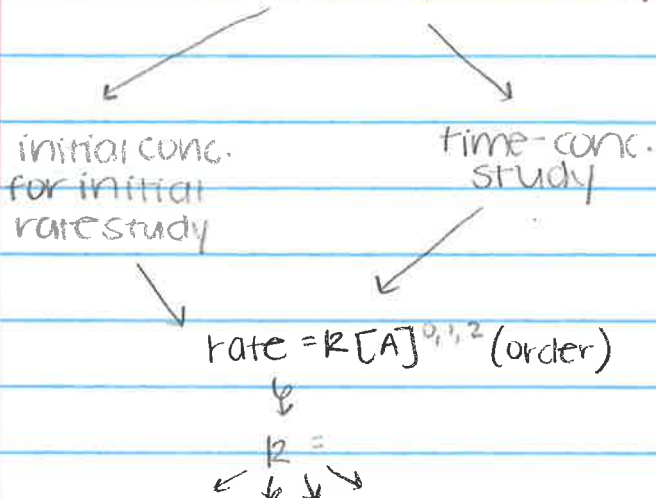 initial conc.
for initial
rate study
time-conc.
study
rate = k[A]^0,1,2 (order)
k =